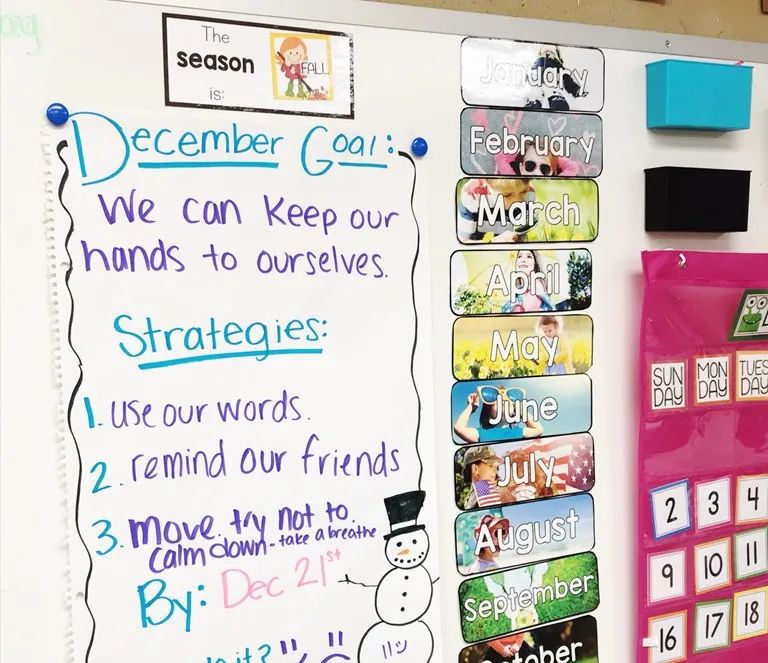 The
season
is:
FALL
December Goal:
We can keep our
hands to ourselves.
Strategies:
1. use our words.
2. remind our friends
3. move. try not to.
calm down - take a breathe
By: Dec 21st
it?
January
February
March
April
May
June
July
August
September
October
SUN
DAY
MON
DAY
TUES
DAY
2 3 4
9 10 11
16 17 18